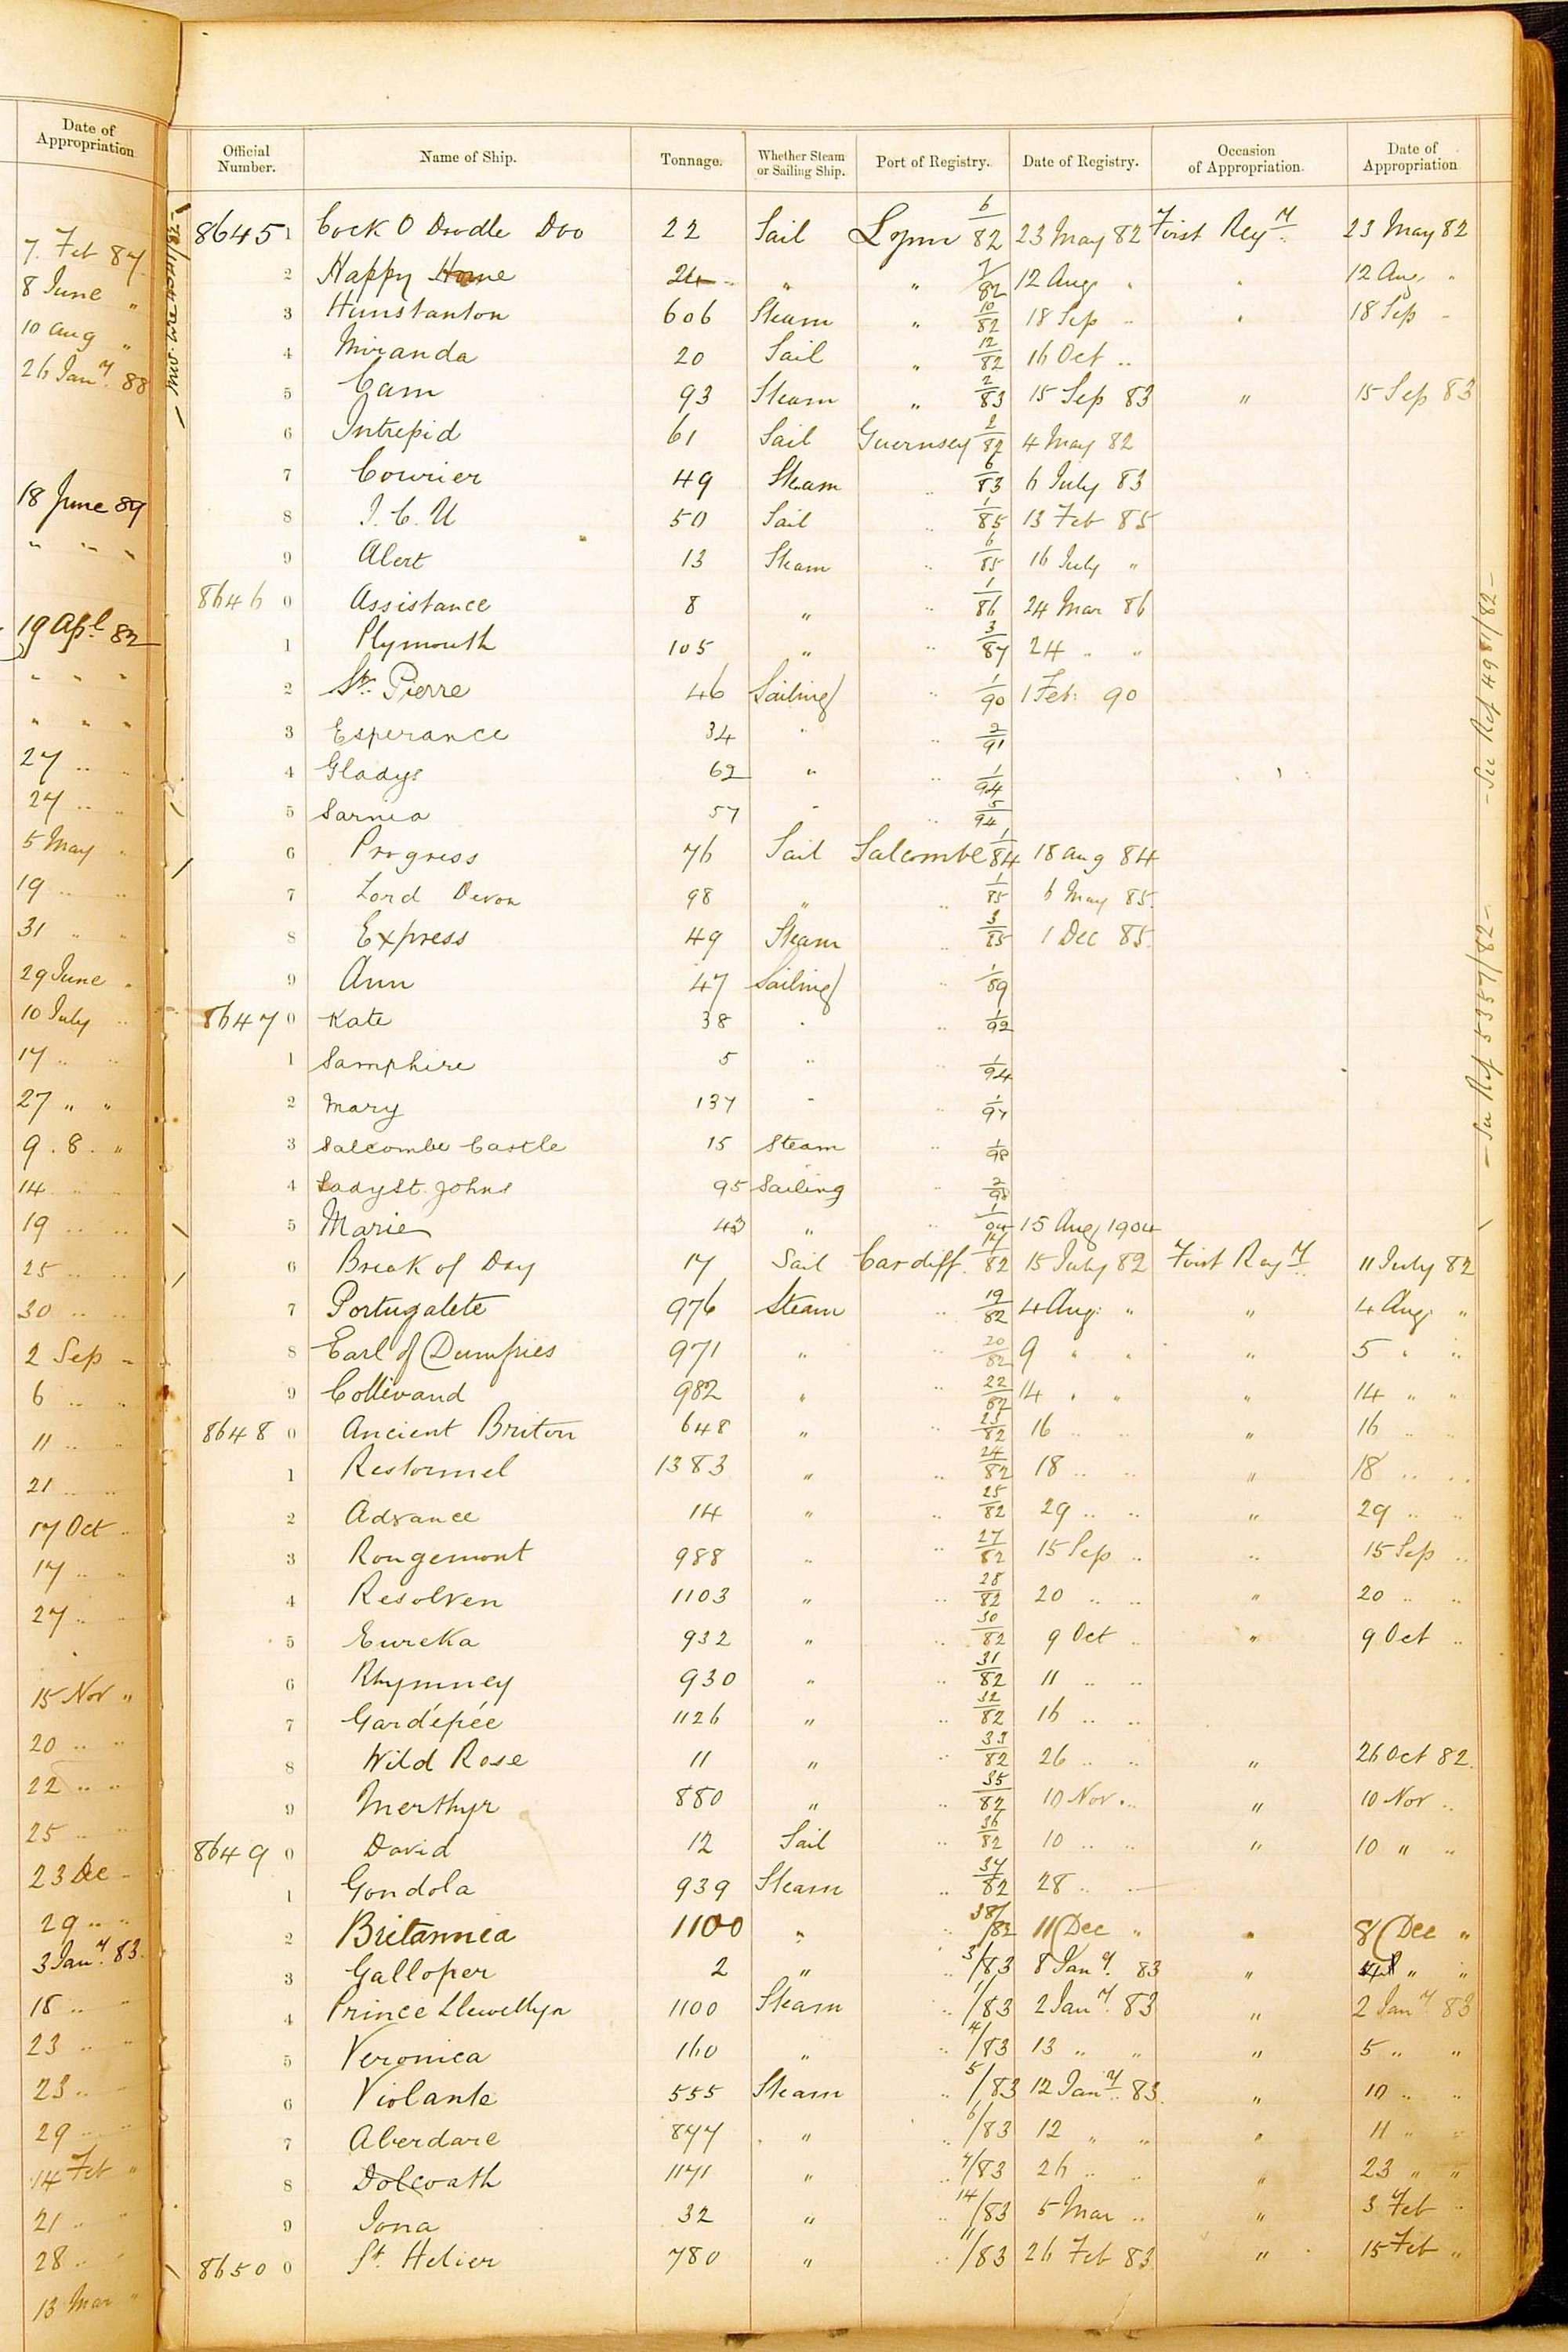 Date of Appropriation
7. Feb 87
8 June "
10 Aug "
26 Jan<sup>y</sup>. 88
18 June 89
" " "
19 Ap<sup>l</sup> 82
" " "
" " "
27 " "
27 " "
5 May "
19 " "
31 " "
29 June "
10 July "
17 " "
27 " "
9. 8. "
14 " "
19 " "
25 " "
30 " "
2 Sep "
6 " "
11 " "
21 " "
17 Oct "
17 " "
27 " "
15 Nov "
20 " "
22 " "
25 " "
23 Dec "
29 " "
3 Jan<sup>y</sup>. 83
18 " "
23 " "
23 " "
29 " "
14 Feb "
21 " "
28 " "
13 Mar "
Official Number. Name of Ship. Tonnage. Whether Steam or Sailing Ship. Port of Registry. Date of Registry. Occasion of Appropriation. Date of Appropriation
8645 1 Cock O Doodle Doo 22 Sail Lynn 6/82 23 May 82 First Reg<sup>y</sup> 23 May 82
2 Happy Home 24 " " 7/82 12 Aug " " 12 Aug "
3 Hunstanton 606 Steam " 10/82 18 Sep " " 18 Sep "
4 Miranda 20 Sail " 12/82 16 Oct "
5 Cam 93 Steam " 2/83 15 Sep 83 " 15 Sep 83
6 Intrepid 61 Sail Guernsey 2/82 4 May 82
7 Courier 49 Steam " 6/83 6 July 83
8 I. C. U 50 Sail " 1/85 13 Feb 85
9 Alert 13 Steam " 6/85 16 July "
8646 0 Assistance 8 " " 1/86 24 Mar 86
1 Plymouth 105 " " 3/87 24 " "
2 St. Pierre 46 Sailing " 1/90 1 Feb. 90
3 Esperance 34 " " 2/91
4 Gladys 62 " " 1/94
5 Sarnia 57 " " 5/94
6 Progress 76 Sail Salcombe 1/84 18 Aug 84
7 Lord Devon 98 " " 1/85 6 May 85.
8 Express 49 Steam " 3/85 1 Dec 85.
9 Ann 47 Sailing " 1/89
8647 0 Kate 38 " " 1/92
1 Samphire 5 " " 1/94
2 Mary 137 " " 1/97
3 Salcombe Castle 15 Steam " 1/98
4 Lady St. Johns 95 Sailing " 2/98
5 Marie 43 " " 1/04 15 Aug 1904
6 Break of Day 17 Sail Cardiff 17/82 15 July 82 First Reg<sup>y</sup> 11 July 82
7 Portugalete 976 Steam " 19/82 4 Aug. " " 4 Aug. "
8 Earl of Dumfries 971 " " 20/82 9 " " " 5 " "
9 Collivaud 982 " " 22/82 14 " " " 14 " "
8648 0 Ancient Briton 648 " " 23/82 16 " " " 16 " "
1 Restormel 1383 " " 24/82 18 " " " 18 " "
2 Advance 14 " " 25/82 29 " " " 29 " "
3 Rougemont 988 " " 27/82 15 Sep " " 15 Sep "
4 Resolven 1103 " " 28/82 20 " " " 20 " "
5 Eureka 932 " " 30/82 9 Oct " " 9 Oct "
6 Rhymney 930 " " 31/82 11 " "
7 Gardépée 1126 " " 32/82 16 " "
8 Wild Rose 11 " " 33/82 26 " " " 26 Oct 82.
9 Merthyr 880 " " 35/82 10 Nov. " " 10 Nov "
8649 0 David 12 Sail " 36/82 10 " " " 10 " "
1 Gondola 939 Steam " 37/82 28 " "
2 Britannia 1100 " " 38/82 11 Dec " " 8 Dec "
3 Galloper 2 " " 3/83 8 Jan<sup>y</sup>. 83 " " "
4 Prince Llewellyn 1100 Steam " 1/83 2 Jan<sup>y</sup>. 83 " 2 Jan<sup>y</sup> 83
5 Veronica 160 " " 4/83 13 " " " 5 " "
6 Violante 555 Steam " 5/83 12 Jan<sup>y</sup> 83. " 10 " "
7 Aberdare 877 " " 6/83 12 " " " 11 " "
8 Dolcoath 1171 " " 7/83 26 " " " 23 " "
9 Iona 32 " " 14/83 5 Mar " " 3 Feb "
8650 0 St. Helier 780 " " 11/83 26 Feb 83. " 15 Feb "
- See Ref 4981/82 -
- See Ref 5357/82 -